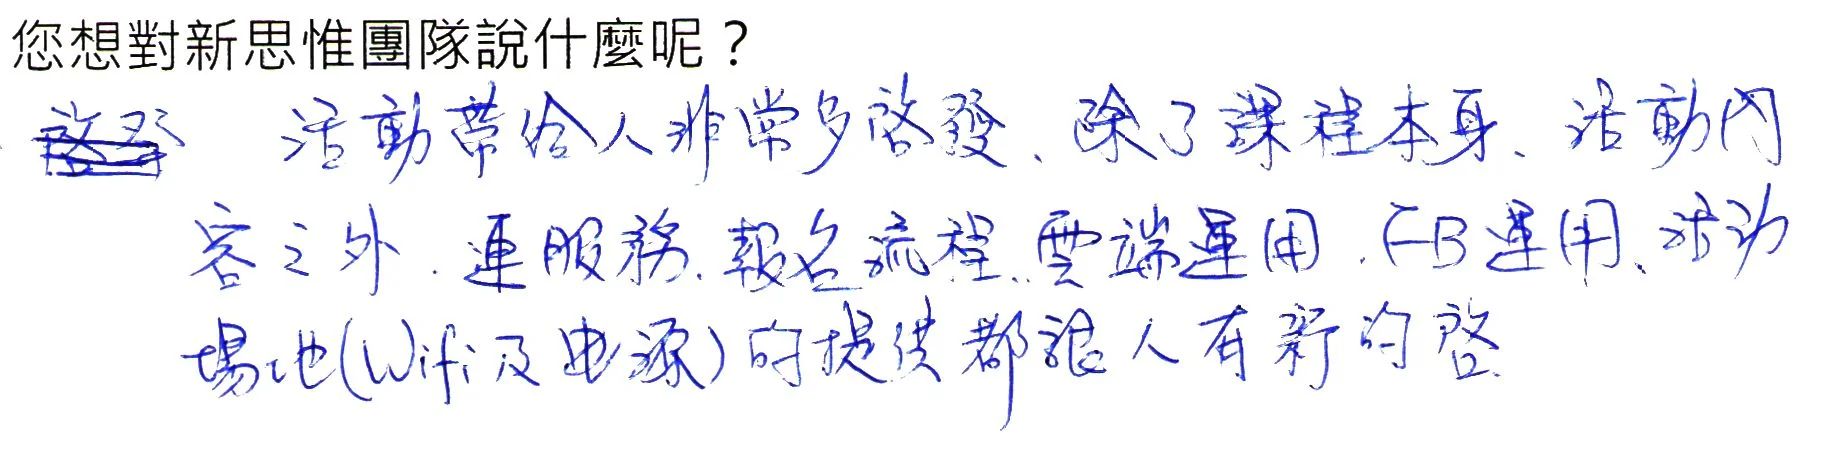 您想對新思惟團隊說什麼呢？
活動帶給人非常多啓發、除了課程本身、活動內
容之外、連服務、報名流程、雲端運用、FB運用、活动
場地(Wifi及电源)的提供都讓人有新的啓